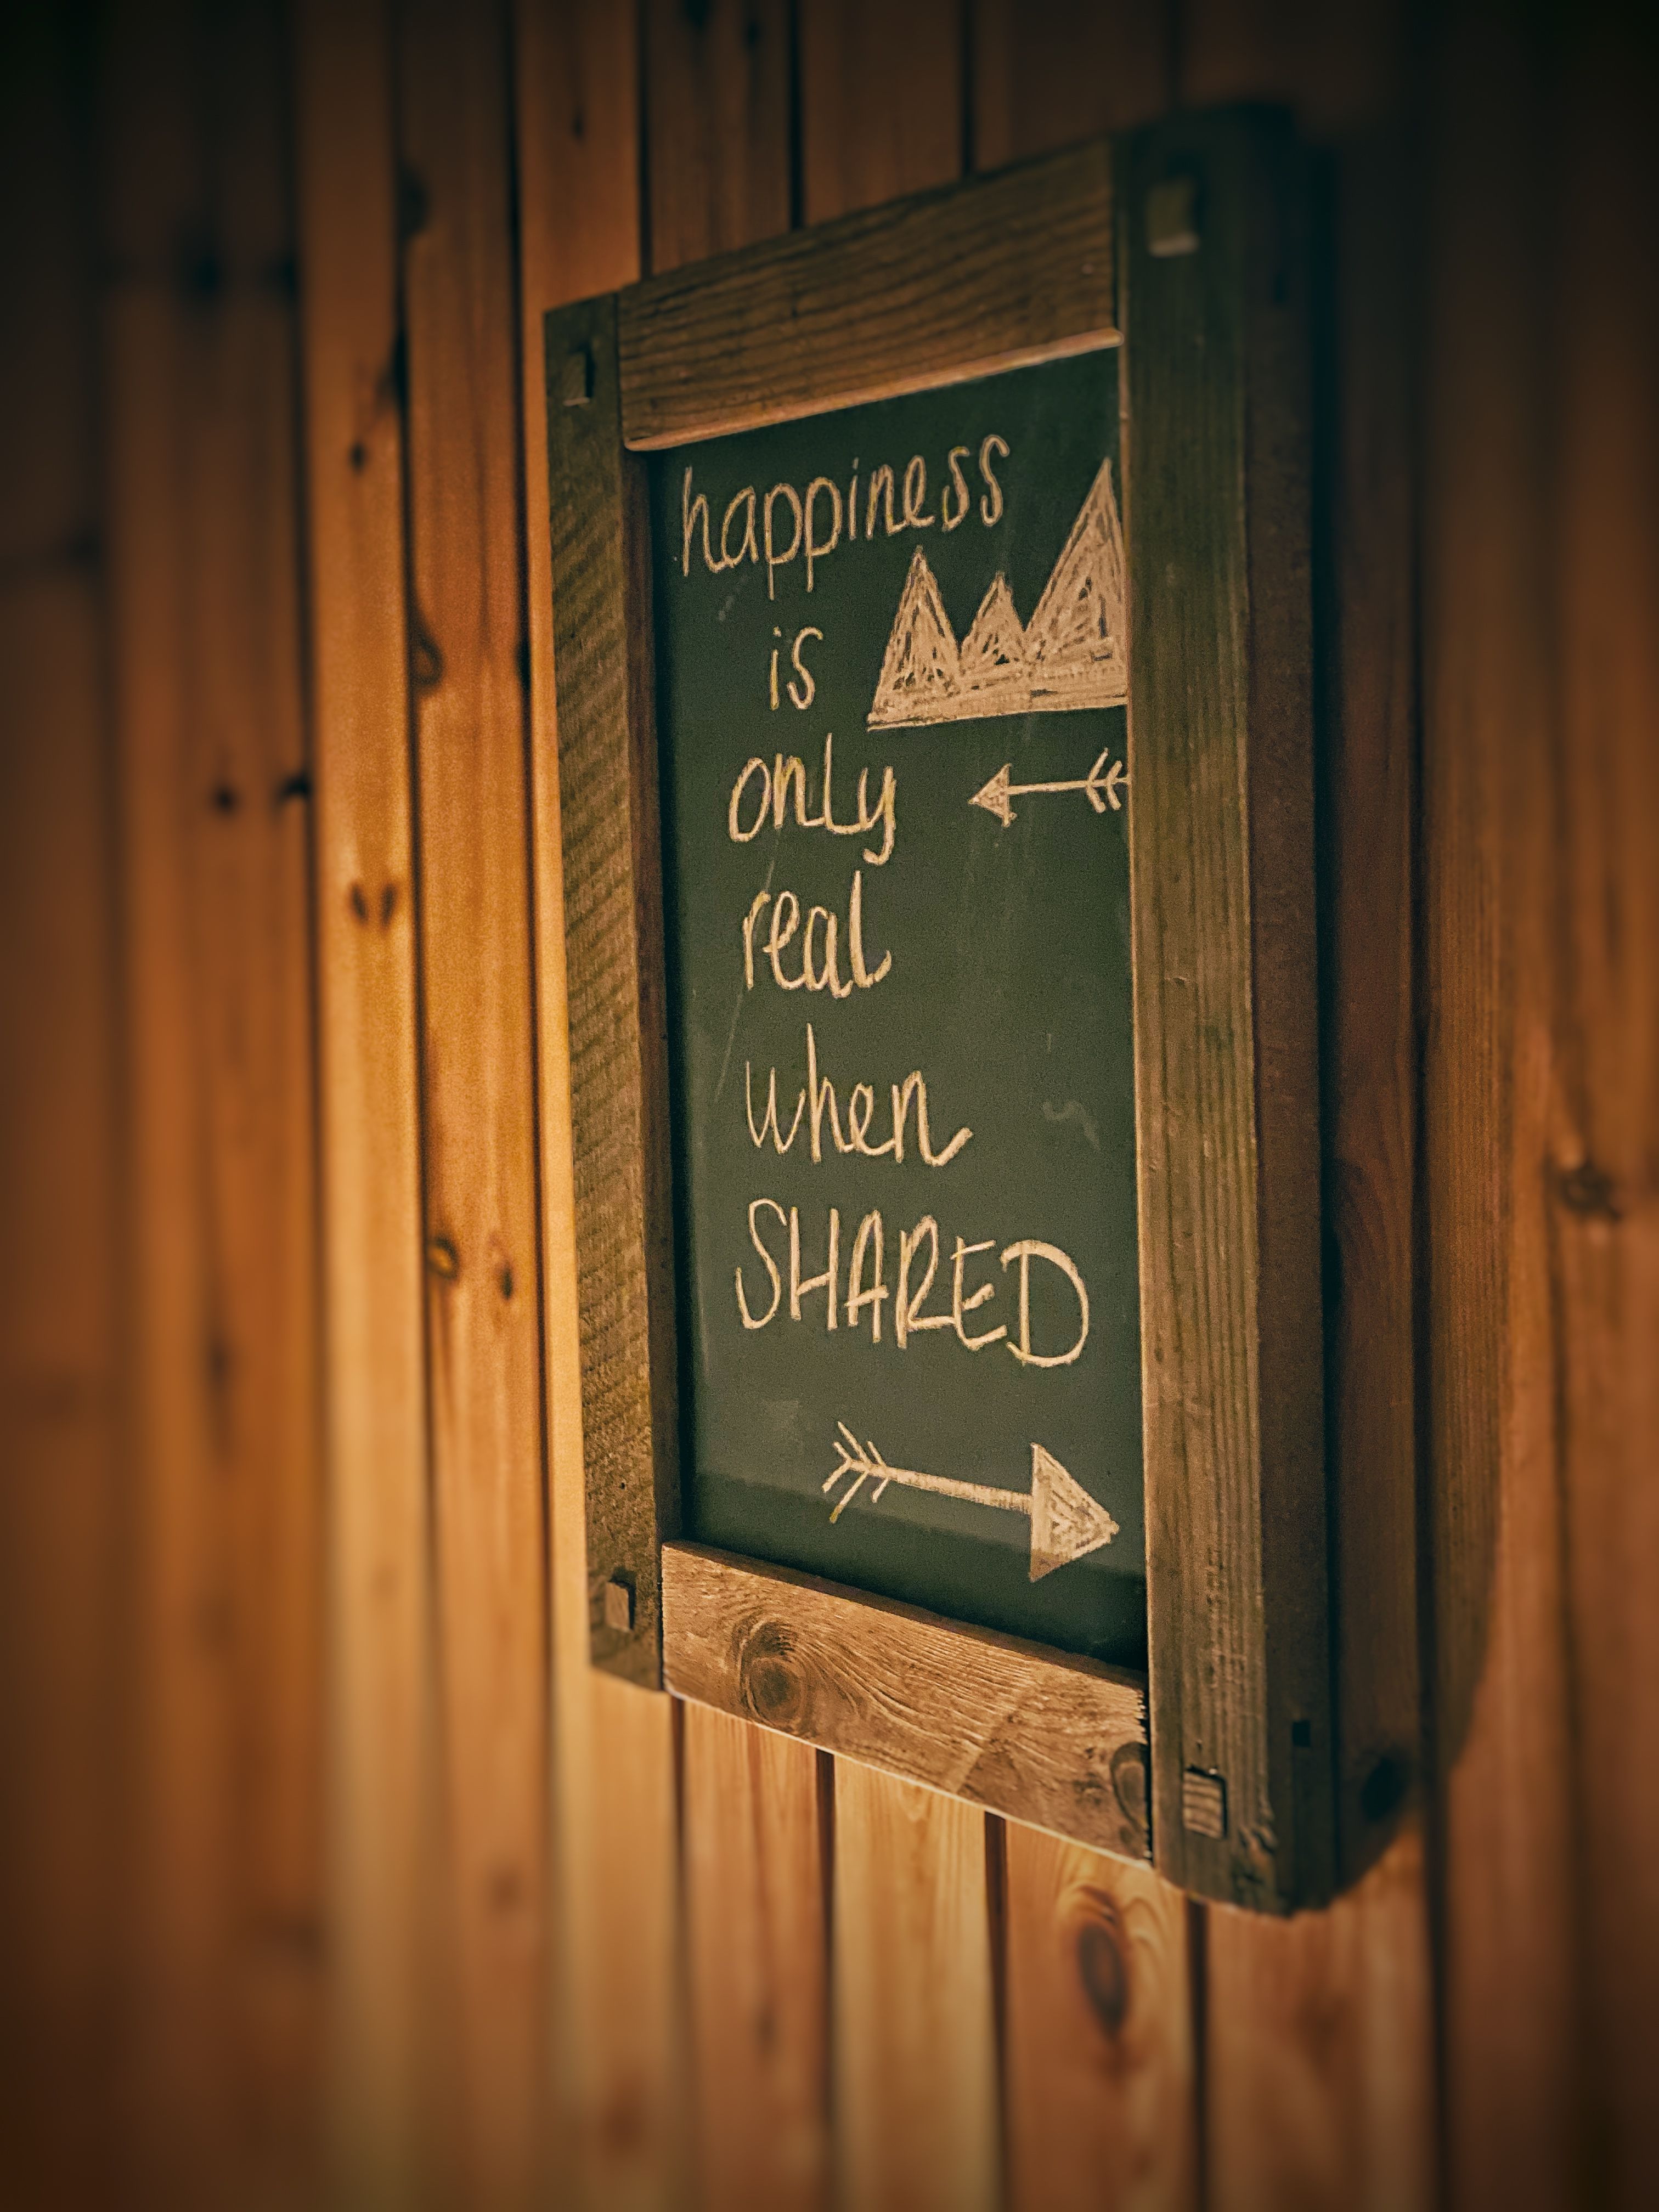 happiness
is
only
real
when
SHARED